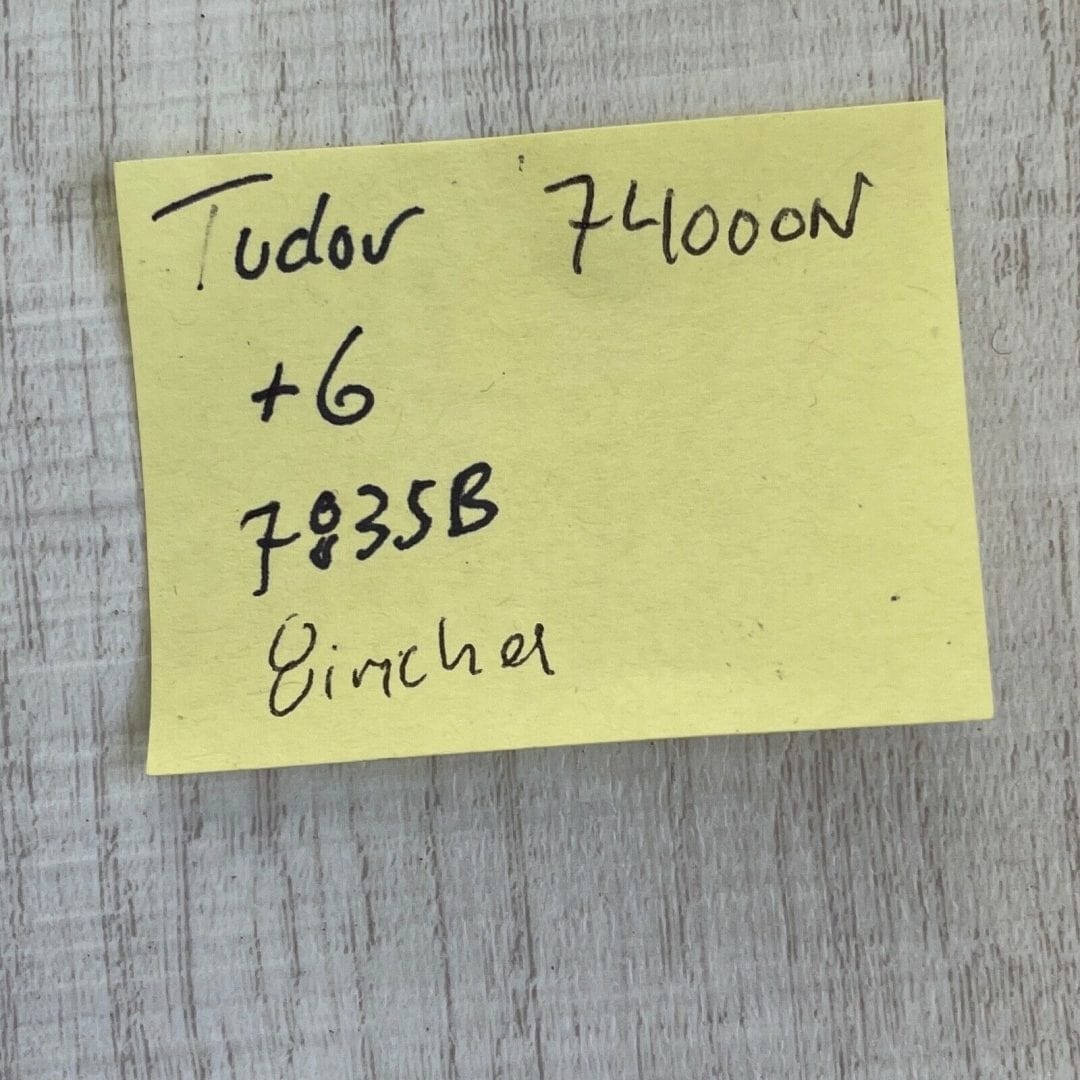 Tudor 74000N
+6
7835B